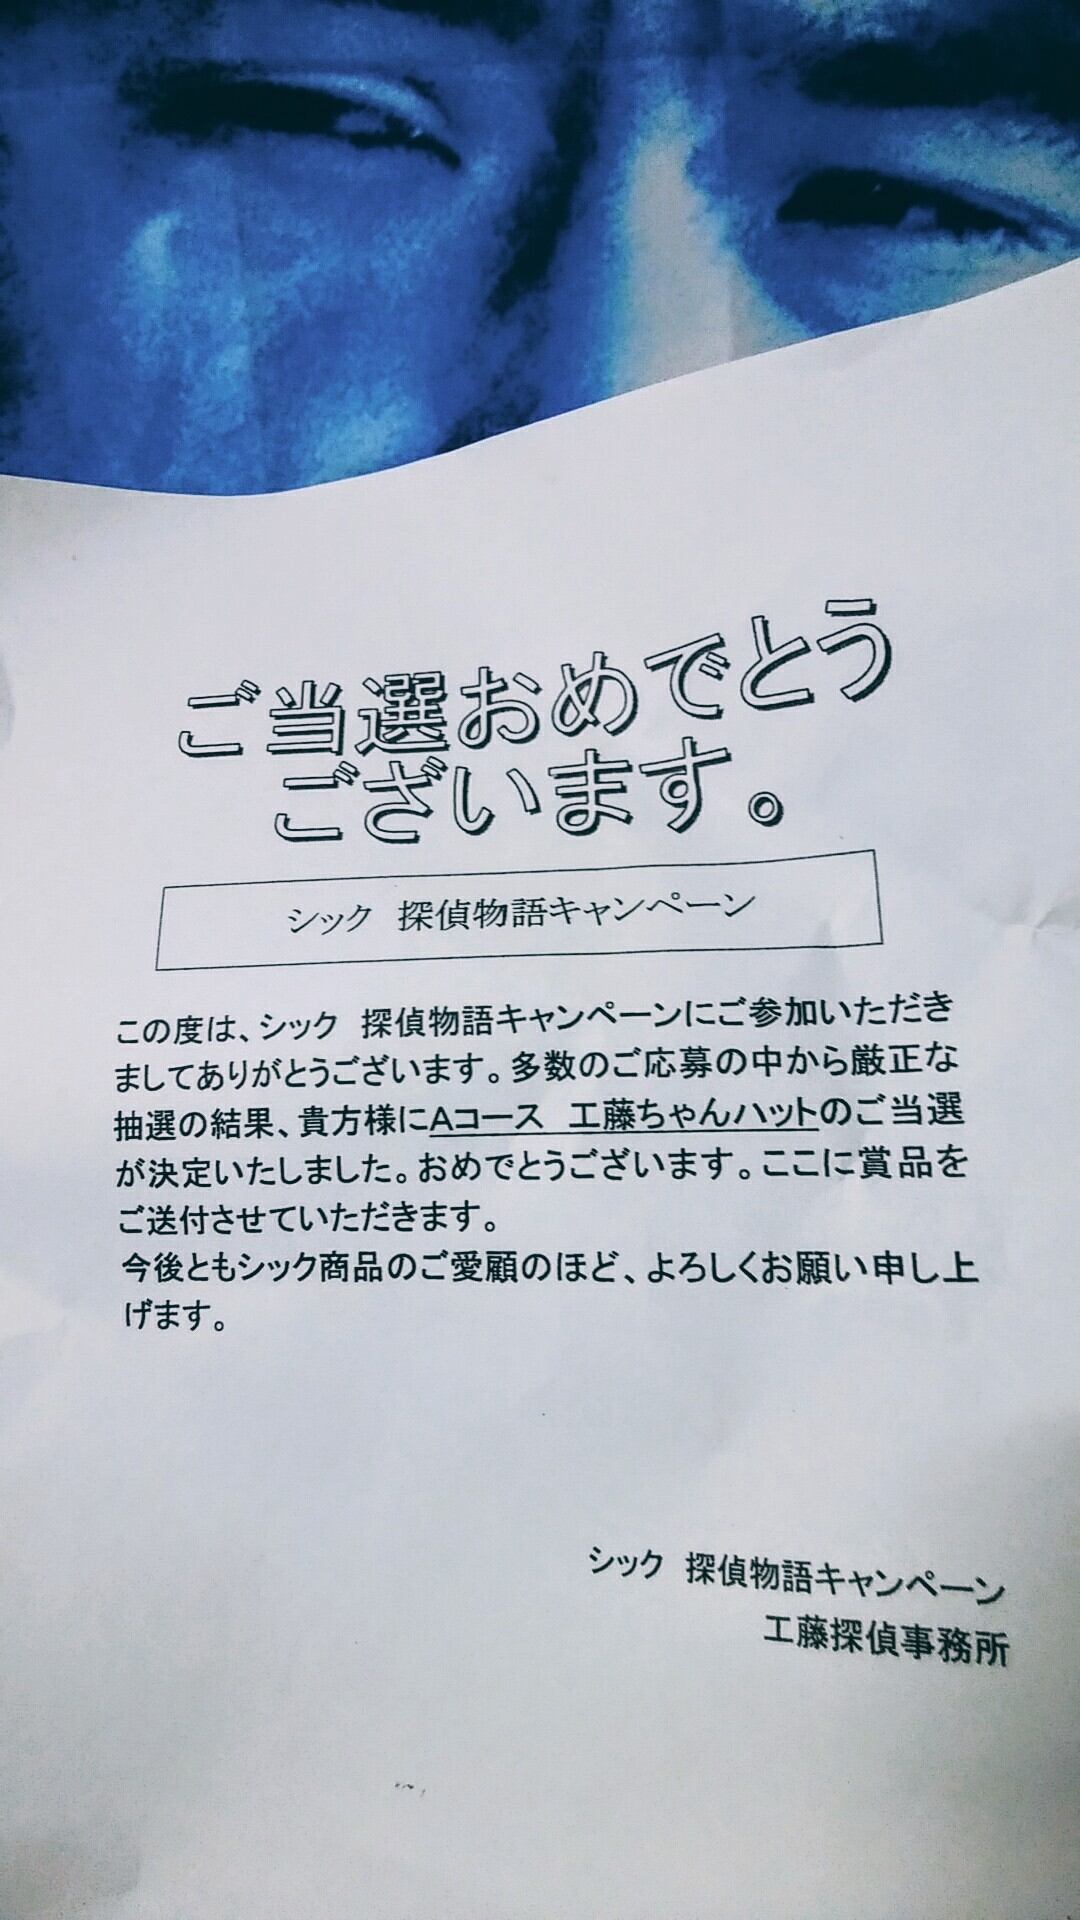 ご当選おめでとう
ございます。
シック　探偵物語キャンペーン
この度は、シック　探偵物語キャンペーンにご参加いただき
ましてありがとうございます。多数のご応募の中から厳正な
抽選の結果、貴方様にAコース　工藤ちゃんハットのご当選
が決定いたしました。おめでとうございます。ここに賞品を
ご送付させていただきます。
今後ともシック商品のご愛顧のほど、よろしくお願い申し上
げます。
シック　探偵物語キャンペーン
工藤探偵事務所